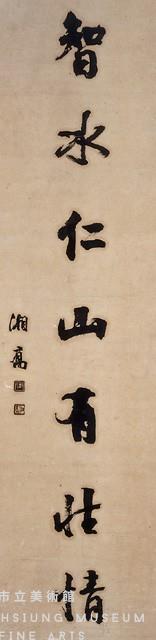 智水仁山有性情
湘亭
市立美術館
HSIUNG MUSEUM
FINE ARTS